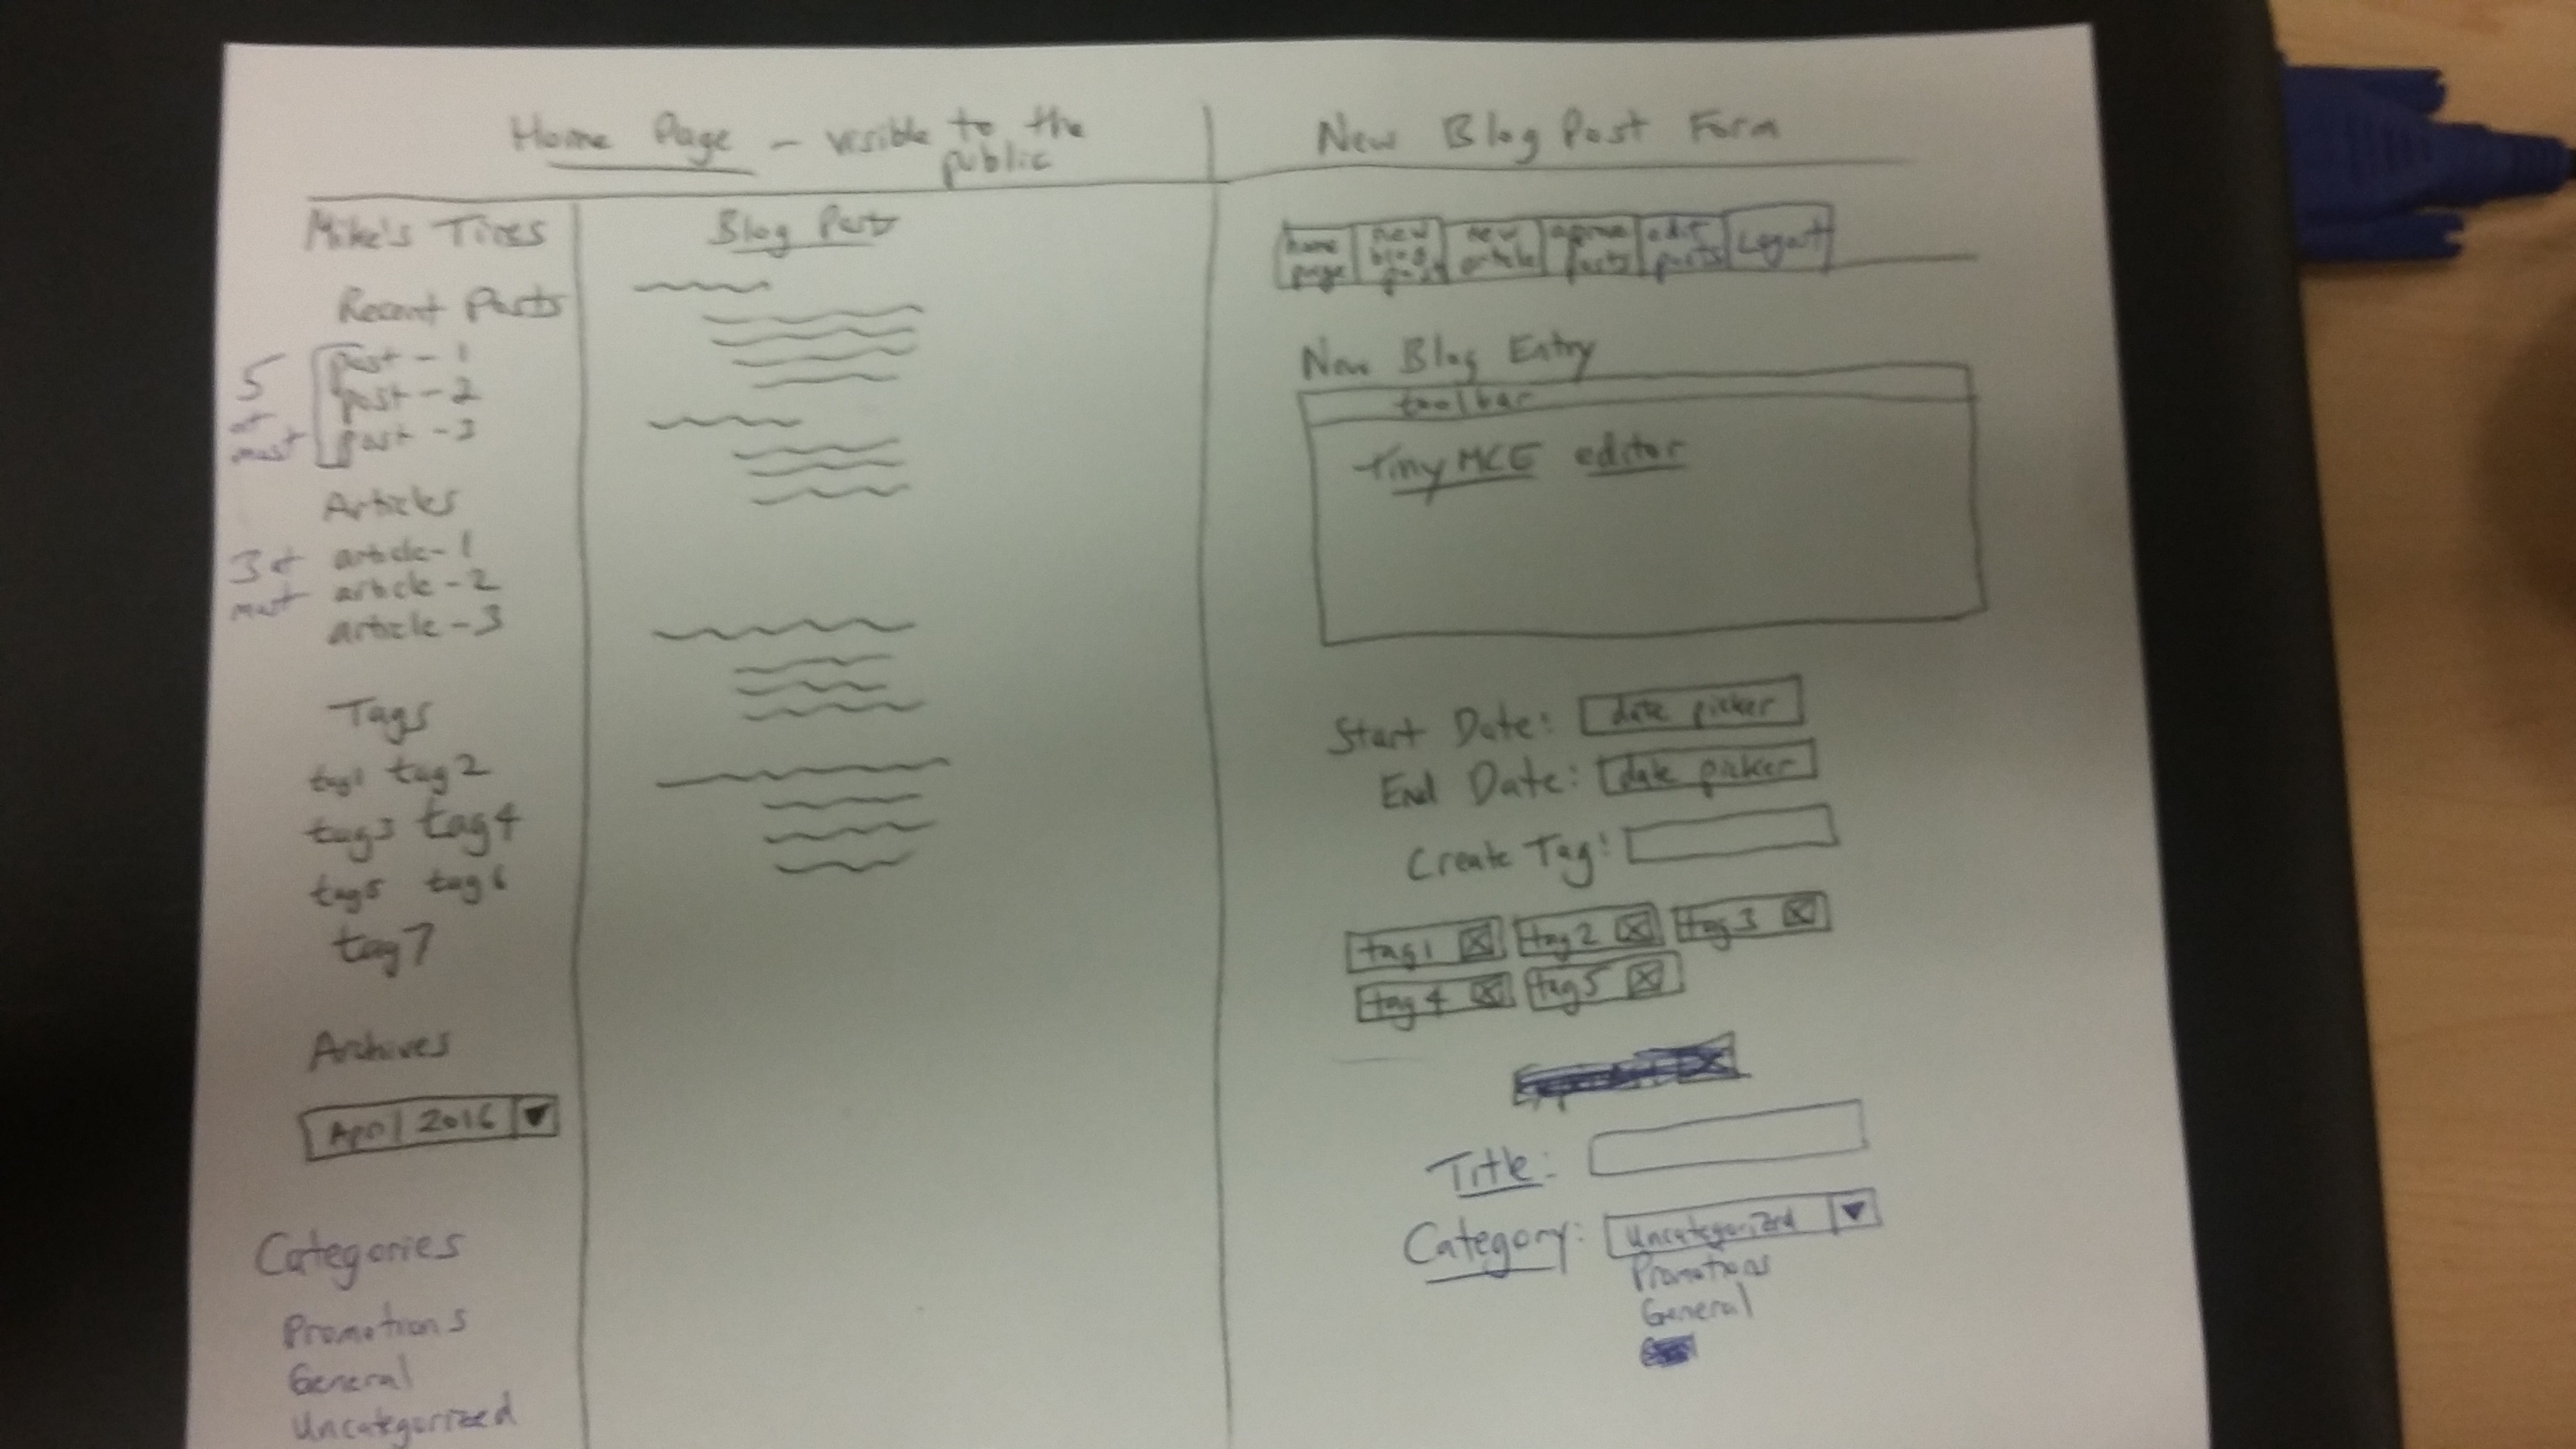 Home Page - visible to the
public
Mike's Tires
Recent Posts
5
at
most
post - 1
post - 2
post - 3
Articles
3 at
most
article - 1
article - 2
article - 3
Tags
tag1 tag2
tag3 tag4
tag5 tag6
tag7
Archives
April 2016
Categories
Promotions
General
Uncategorized
Blog Posts
New Blog Post Form
home
page
new
blog
post
new
article
posts
edit
posts
Logout
New Blog Entry
toolbar
tiny MCE editor
Start Date: date picker
End Date: date picker
Create Tag:
tag1 tag2 tag3
tag4 tag5
Title:
Category: Uncategorized
Promotions
General